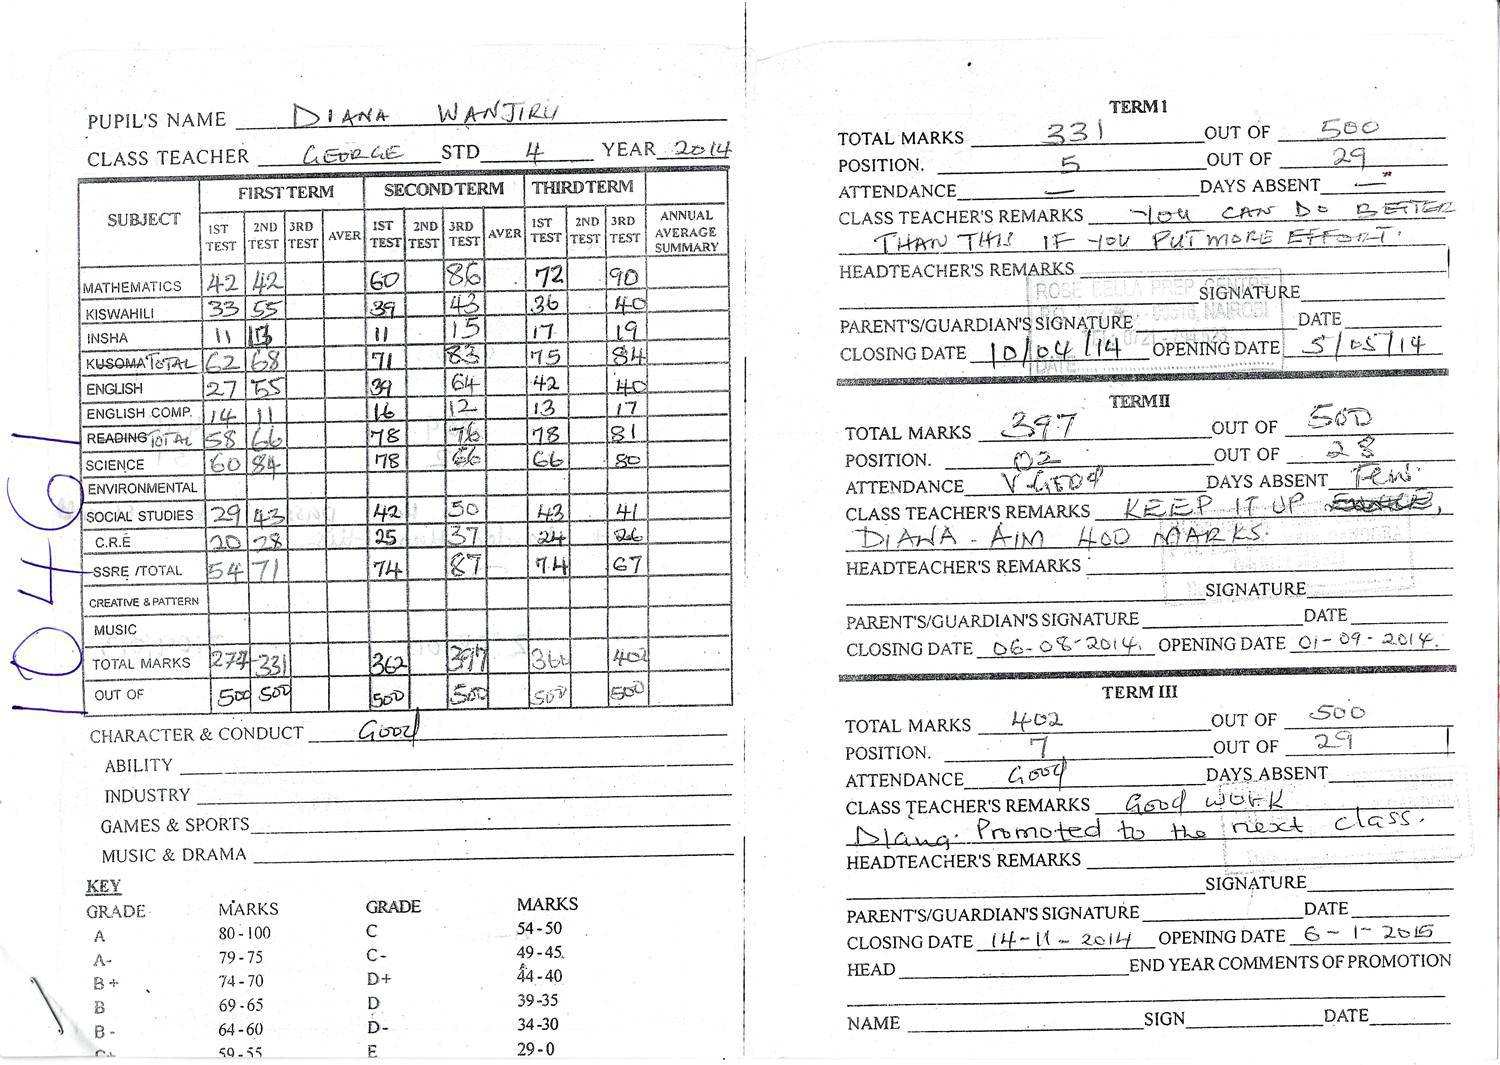 PUPIL'S NAME DIANA WANJIRU
CLASS TEACHER GEORGE STD 4 YEAR 2014
SUBJECT FIRST TERM SECOND TERM THIRD TERM
1ST TEST 2ND TEST 3RD TEST AVER 1ST TEST 2ND TEST 3RD TEST AVER 1ST TEST 2ND TEST 3RD TEST ANNUAL AVERAGE SUMMARY
MATHEMATICS 42 42 60 86 72 90
KISWAHILI 33 55 39 43 36 40
INSHA 11 13 11 15 17 19
KUSOMA TOTAL 62 68 71 83 75 84
ENGLISH 27 55 39 64 42 40
ENGLISH COMP. 14 11 16 12 13 17
READING TOTAL 58 66 78 76 78 81
SCIENCE 60 84 78 66 66 80
ENVIRONMENTAL
SOCIAL STUDIES 29 43 42 50 43 41
C.R.E 20 28 25 37 24 26
SSRE /TOTAL 54 71 74 87 74 67
CREATIVE & PATTERN
MUSIC
TOTAL MARKS 274 331 362 397 366 402
OUT OF 500 500 500 500 500 500
CHARACTER & CONDUCT Good
ABILITY
INDUSTRY
GAMES & SPORTS
MUSIC & DRAMA
KEY
GRADE MARKS GRADE MARKS
A 80-100 C 54-50
A- 79-75 C- 49-45
B+ 74-70 D+ 44-40
B 69-65 D 39-35
B- 64-60 D- 34-30
C+ 59-55 E 29-0
1046
TERM I
TOTAL MARKS 331 OUT OF 500
POSITION. 5 OUT OF 29
ATTENDANCE — DAYS ABSENT —
CLASS TEACHER'S REMARKS YOU CAN DO BETTER
THAN THIS IF YOU PUT MORE EFFORT.
HEADTEACHER'S REMARKS
ROSE BELLA PREP CENTRE
SIGNATURE
NAIROBI
PARENT'S/GUARDIAN'S SIGNATURE DATE
CLOSING DATE 10/04/14 OPENING DATE 5/05/14
DATE
TERM II
TOTAL MARKS 397 OUT OF 500
POSITION. 02 OUT OF 28
ATTENDANCE V.GOOD DAYS ABSENT Few
CLASS TEACHER'S REMARKS KEEP IT UP
DIANA - AIM 400 MARKS.
HEADTEACHER'S REMARKS
SIGNATURE
PARENT'S/GUARDIAN'S SIGNATURE DATE
CLOSING DATE 06-08-2014. OPENING DATE 01-09-2014.
TERM III
TOTAL MARKS 402 OUT OF 500
POSITION. 7 OUT OF 29
ATTENDANCE Good DAYS ABSENT
CLASS TEACHER'S REMARKS Good work
Diana. Promoted to the next class.
HEADTEACHER'S REMARKS
SIGNATURE
PARENT'S/GUARDIAN'S SIGNATURE DATE
CLOSING DATE 14-11-2014 OPENING DATE 6-1-2015
HEAD END YEAR COMMENTS OF PROMOTION
NAME SIGN DATE